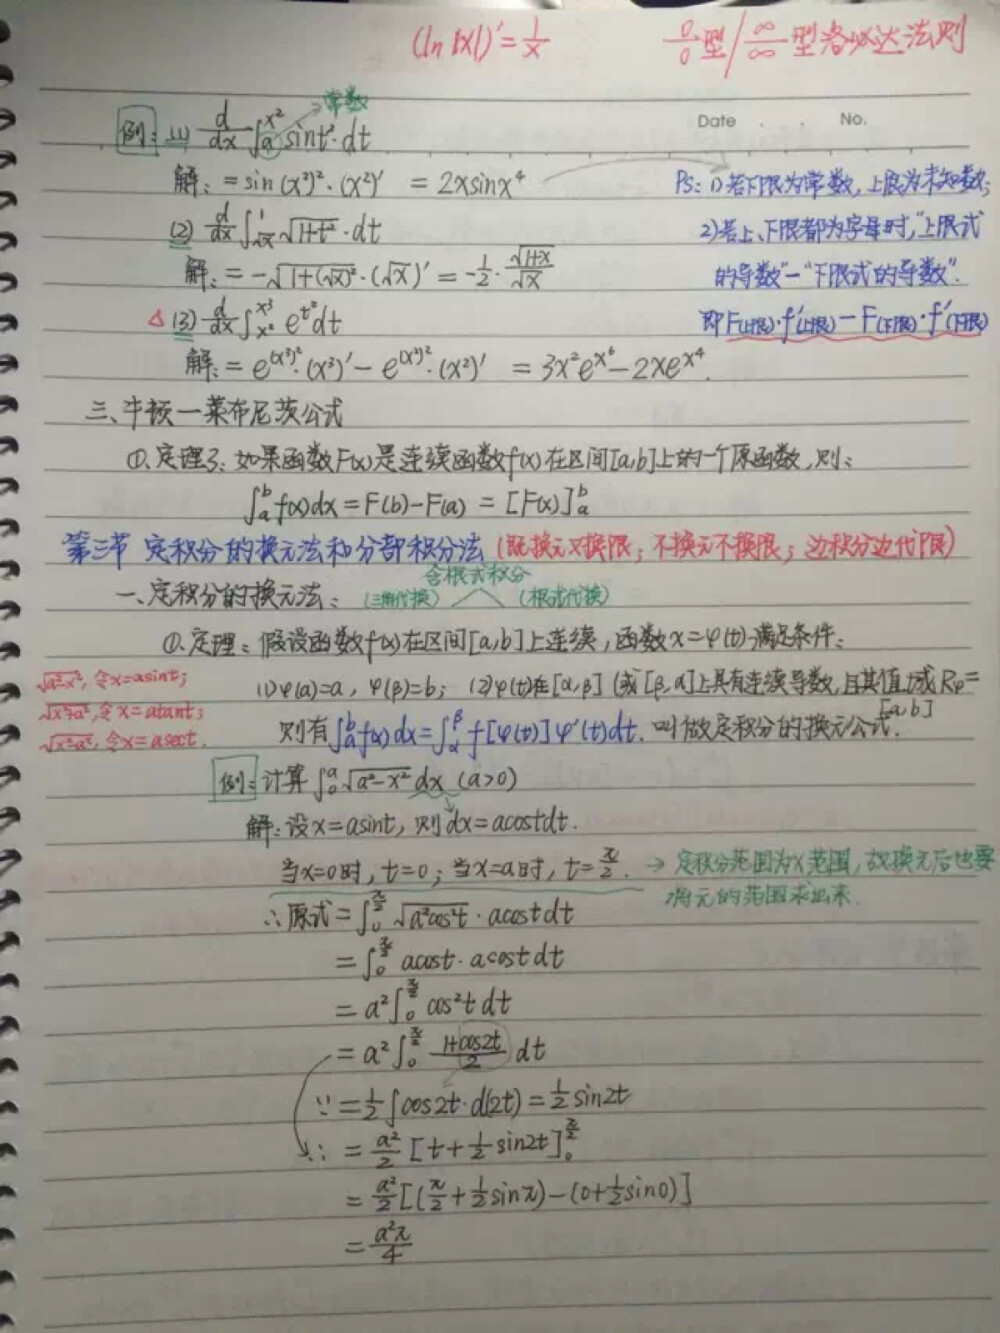 (ln|x|)′=1/x   0/0型/∞/∞型洛必达法则
Date . . No.
常数
例: (1) d/dx ∫ₐ^{x²} sint²·dt
解: =sin(x²)²·(x²)′ = 2xsinx⁴   PS: 1)若下限为常数,上限为未知数;
(2) d/dx ∫_{√x}^{1} √(1+t²)·dt   2)若上、下限都为字母时,"上限式
解: = -√(1+(√x)²)·(√x)′ = -1/2·√(1+x)/√x   的导数"-"下限式的导数".
△(3) d/dx ∫_{x²}^{x³} e^{t²}dt   即F(上限)·f′(上限)-F(下限)·f′(下限)
解: = e^{(x³)²}·(x³)′ - e^{(x²)²}·(x²)′ = 3x²e^{x⁶}-2xe^{x⁴}.
三、牛顿-莱布尼茨公式
①.定理3: 如果函数F(x)是连续函数f(x)在区间[a,b]上的一个原函数,则:
∫ₐ^b f(x)dx=F(b)-F(a) = [F(x)]ₐ^b
第三节 定积分的换元法和分部积分法 (既换元又换限; 不换元不换限; 边积分边代限)
含根式积分
一、定积分的换元法: (三角代换) (根式代换)
①.定理: 假设函数f(x)在区间[a,b]上连续,函数x=φ(t)满足条件:
√(a²-x²),令x=asint;   (1)φ(α)=a, φ(β)=b; (2)φ(t)在[α,β](或[β,α]上具有连续导数,且其值域Rφ=[a,b]
√(x²+a²),令x=atant;
√(x²-a²),令x=asect.   则有∫ₐ^b f(x)dx=∫_α^β f[φ(t)]φ′(t)dt. 叫做定积分的换元公式.
例: 计算∫₀^a √(a²-x²)dx (a>0)
解: 设x=asint, 则dx=acostdt.
当x=0时, t=0; 当x=a时, t=π/2. → 定积分范围为x范围,故换元后也要
将元的范围求出来.
∴原式=∫₀^{π/2} √(a²cos²t)·acostdt
=∫₀^{π/2} acost·acostdt
= a²∫₀^{π/2} cos²t dt
= a²∫₀^{π/2} (1+cos2t)/2 dt
∵ =1/2∫cos2t·d(2t)=1/2sin2t
∴ = a²/2 [t+1/2sin2t]₀^{π/2}
= a²/2[(π/2+1/2sinπ)-(0+1/2sin0)]
= a²π/4